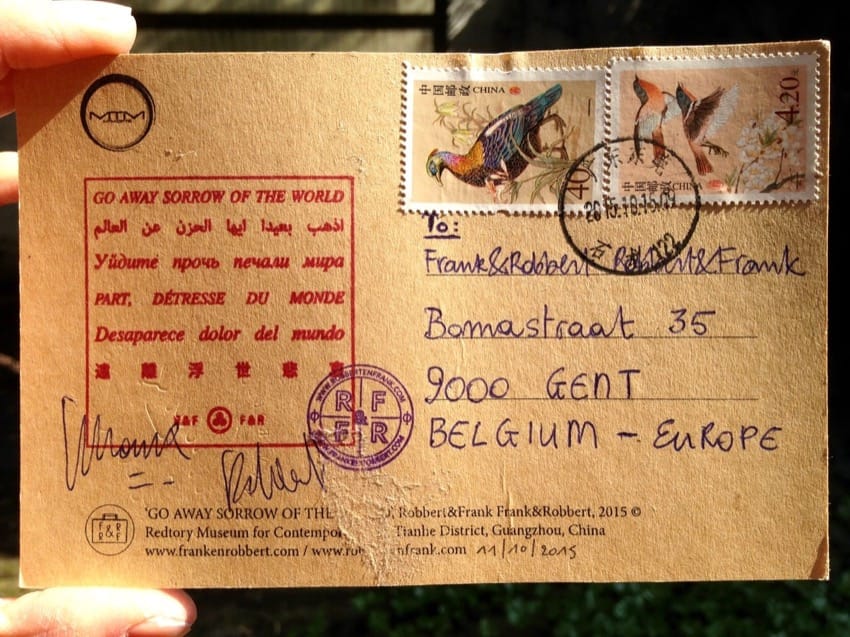 MTM
中国邮政 CHINA
中国邮政 CHINA
4.20
2015.10.15.09
To:
Frank&Robbert Robbert&Frank
Bomastraat 35
9000 GENT
BELGIUM - EUROPE
GO AWAY SORROW OF THE WORLD
اذهب بعيدا ايها الحزن من العالم
Уйдите прочь печали мира
PART, DÉTRESSE DU MONDE
Desaparece dolor del mundo
遠離浮世悲哀
R&F F&R
WWW.ROBBERTENFRANK.COM
R F
&
F R
WWW.FRANKENROBBERT.COM
F&R
R&F
'GO AWAY SORROW OF THE Robbert&Frank Frank&Robbert, 2015 ©
Redtory Museum for Contempor Tianhe District, Guangzhou, China
www.frankenrobbert.com / www.rob enfrank.com 11/10/2015